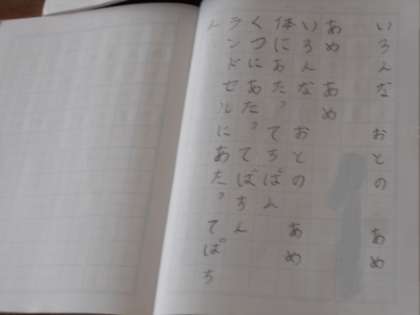 いろんな おとの あめ
あめ あめ
いろんな おとの あめ
体にあたってちぱん
くつにあたってぱちん
ランドセルにあたってぱち
ん